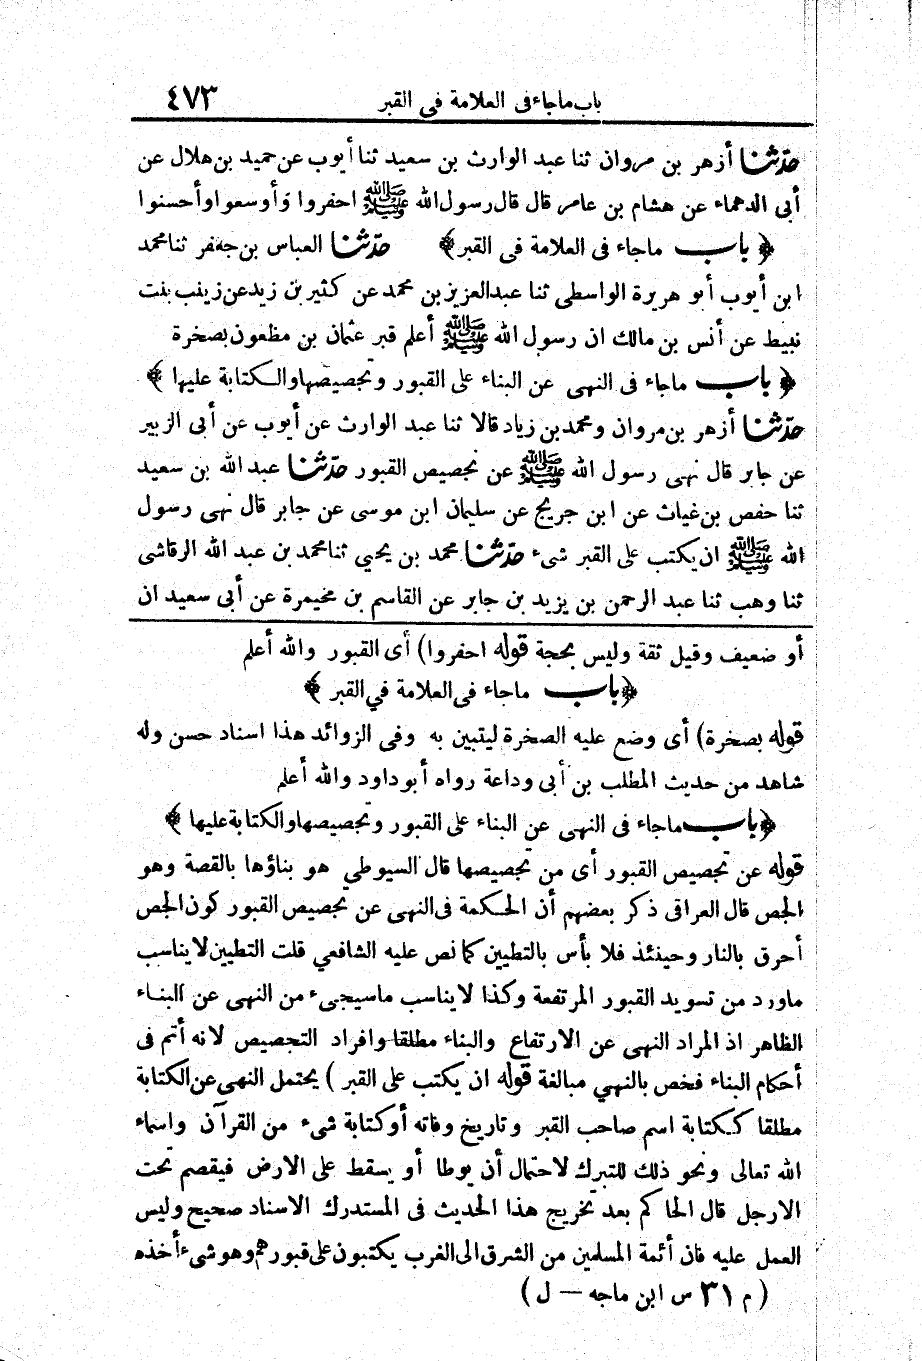 باب ماجاء فى العلامة فى القبر ٤٧٣
حدّثنا أزهر بن مروان ثنا عبد الوارث بن سعيد ثنا أيوب عن حميد بن هلال عن
أبى الدهماء عن هشام بن عامر قال قال رسول الله ﷺ احفروا وأوسعوا وأحسنوا
﴿ باب ماجاء فى العلامة فى القبر ﴾ حدّثنا العباس بن جعفر ثنا محمد
ابن أيوب أبو هريرة الواسطى ثنا عبدالعزيز بن محمد عن كثير بن زيد عن زينب بنت
نبيط عن أنس بن مالك ان رسول الله ﷺ أعلم قبر عثمان بن مظعون بصخرة
﴿ باب ماجاء فى النهى عن البناء على القبور وتجصيصها والكتابة عليها ﴾
حدّثنا أزهر بن مروان ومحمد بن زياد قالا ثنا عبد الوارث عن أيوب عن أبى الزبير
عن جابر قال نهى رسول الله ﷺ عن تجصيص القبور حدّثنا عبد الله بن سعيد
ثنا حفص بن غياث عن ابن جريج عن سليمان ابن موسى عن جابر قال نهى رسول
الله ﷺ ان يكتب على القبر شىء حدّثنا محمد بن يحيي ثنا محمد بن عبد الله الرقاشى
ثنا وهب ثنا عبد الرحمن بن يزيد بن جابر عن القاسم بن مخيمرة عن أبى سعيد ان
أو ضعيف وقيل ثقة وليس بحجة قوله احفروا) أى القبور والله أعلم
﴿ باب ماجاء فى العلامة في القبر ﴾
قوله بصخرة) أى وضع عليه الصخرة ليتبين به وفى الزوائد هذا اسناد حسن وله
شاهد من حديث المطلب بن أبى وداعة رواه أبوداود والله أعلم
﴿ باب ماجاء فى النهى عن البناء على القبور وتجصيصها والكتابة عليها ﴾
قوله عن تجصيص القبور أى من تجصيصها قال السيوطي هو بناؤها بالقصة وهو
الجص قال العراقى ذكر بعضهم أن الحكمة فى النهى عن تجصيص القبور كون الجص
أحرق بالنار وحينئذ فلا بأس بالتطيين كما نص عليه الشافعي قلت التطيين لايناسب
ماورد من تسويد القبور المرتفعة وكذا لا يناسب ماسيجىء من النهى عن البناء
الظاهر اذ المراد النهى عن الارتفاع والبناء مطلقا وافراد التجصيص لانه أتم فى
أحكام البناء فخص بالنهي مبالغة قوله ان يكتب على القبر ) يحتمل النهى عن الكتابة
مطلقا ككتابة اسم صاحب القبر وتاريخ وفاته أوكتابة شىء من القرآن واسماء
الله تعالى ونحو ذلك للتبرك لاحتمال أن يوطا أو يسقط على الارض فيقصم تحت
الارجل قال الحاكم بعد تخريج هذا الحديث فى المستدرك الاسناد صحيح وليس
العمل عليه فان أئمة المسلمين من الشرق الى الغرب يكتبون على قبورهم وهو شىء أخذه
( م ٣١ س ابن ماجه — ل )